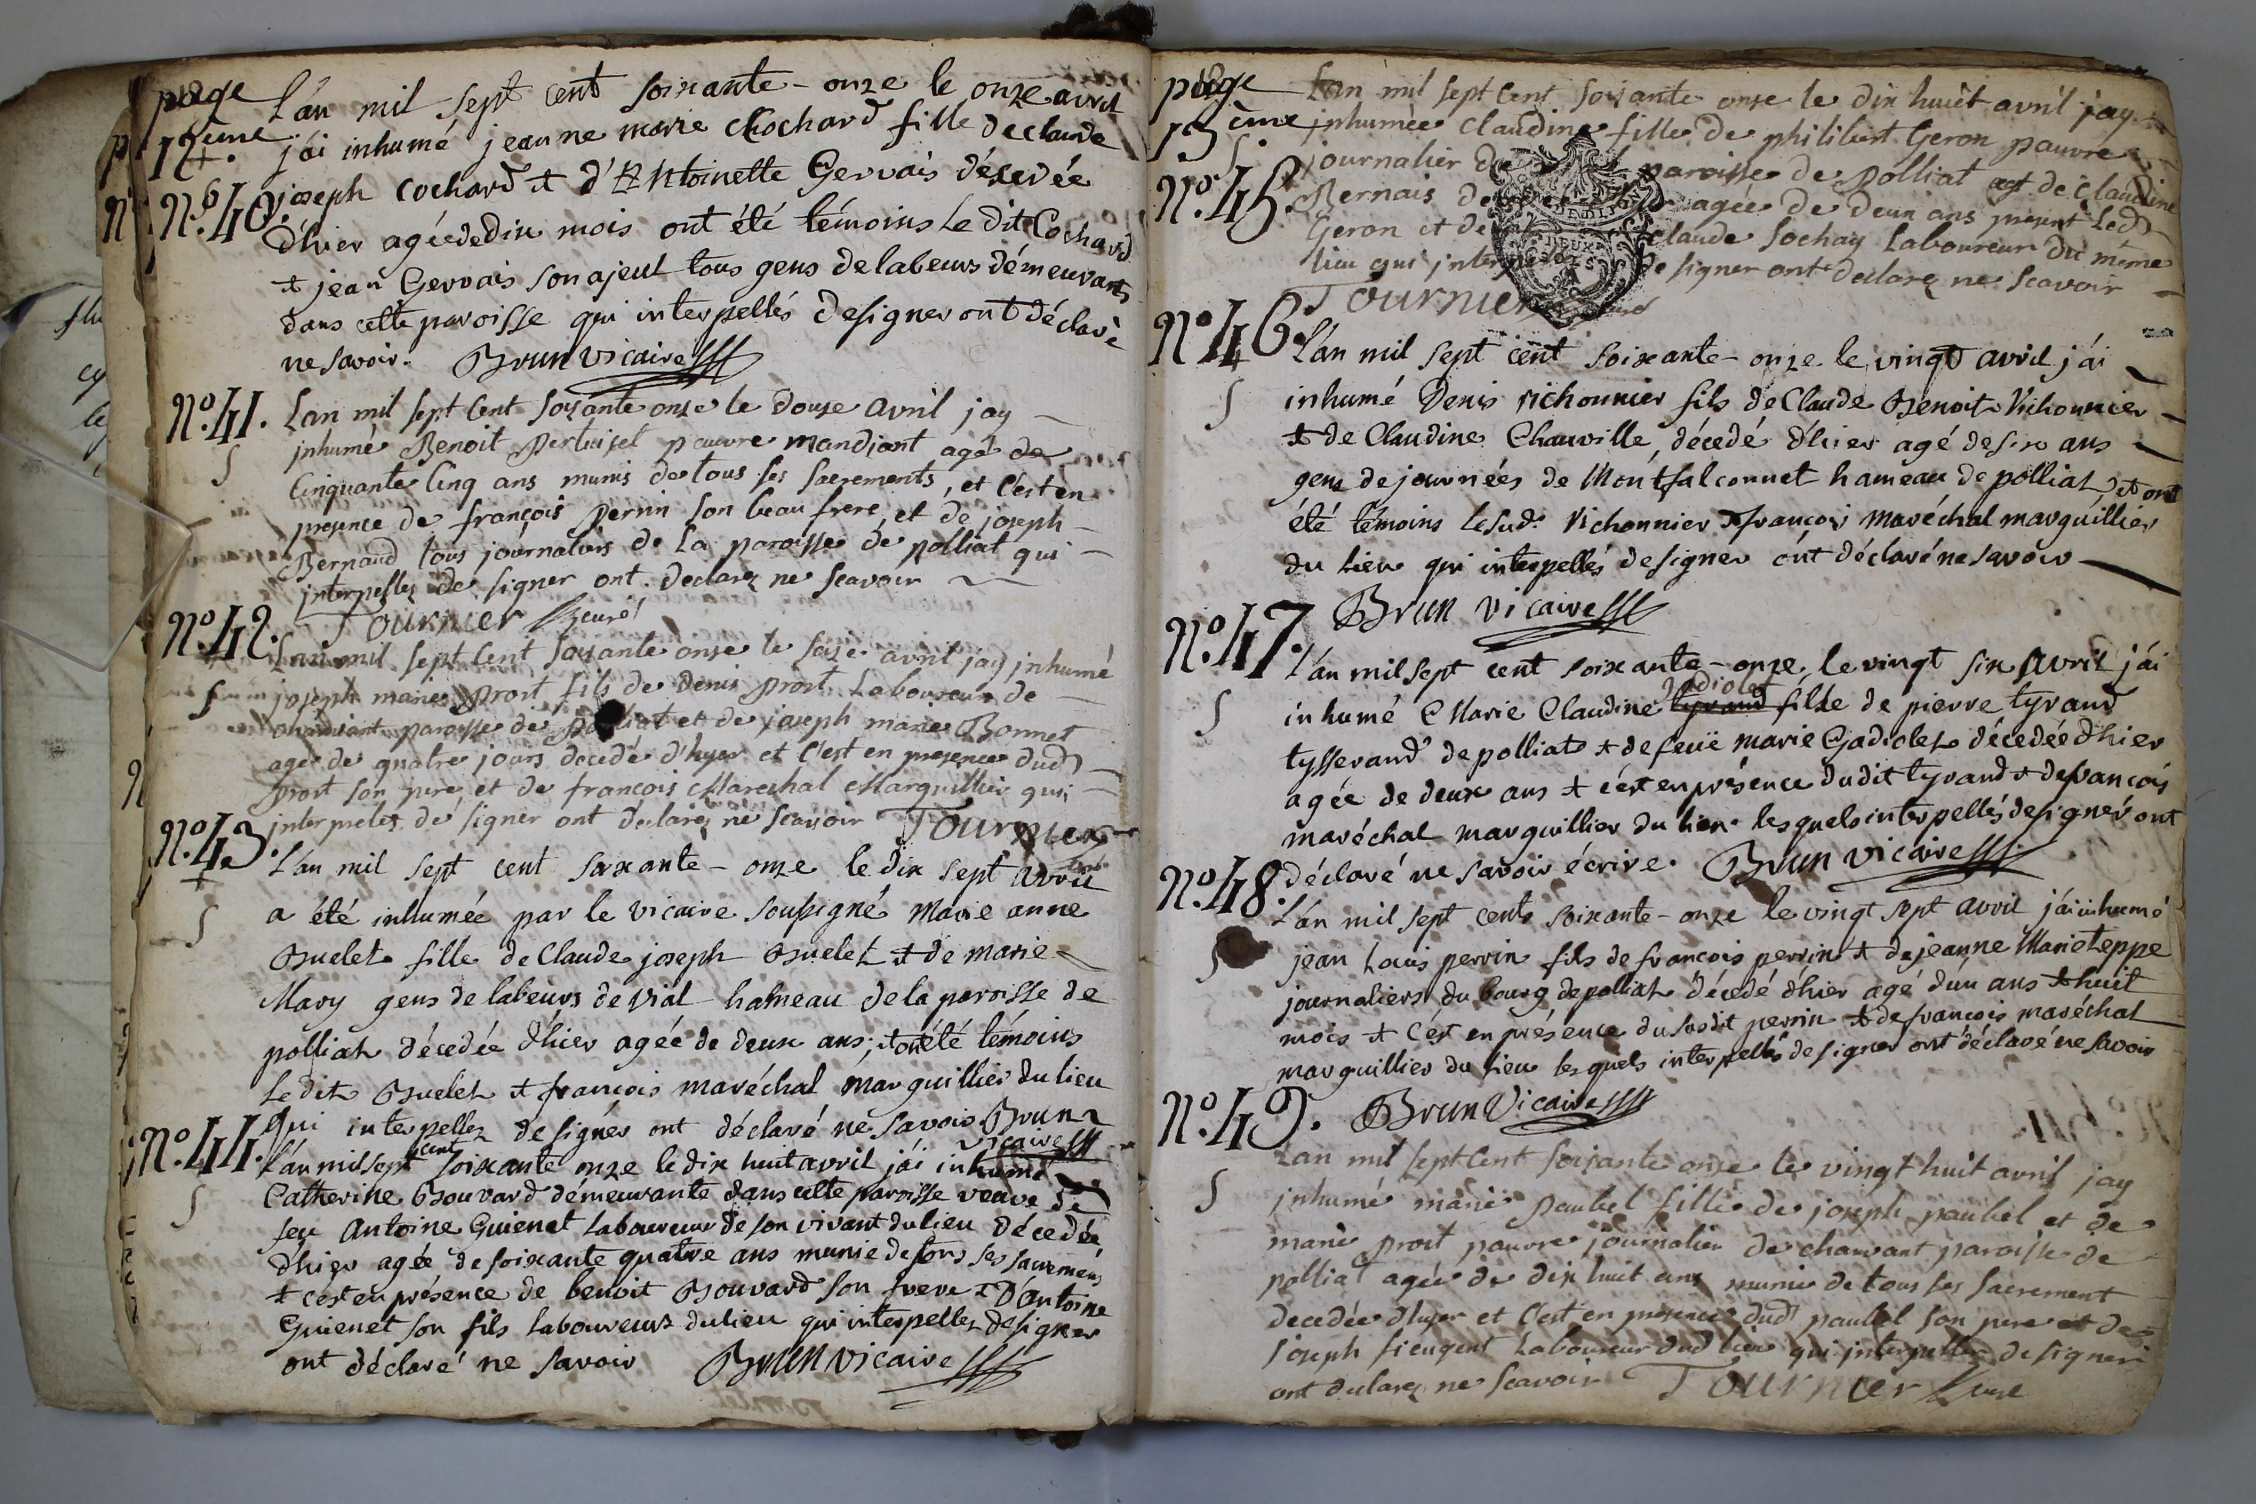 page
12ème
N.º 40.
L'an mil sept cent soixante - onze le onze avril
j'ai inhumé jeanne marie Chochard fille de claude
joseph cochard & d'Antoinette Gervais décédée
d'hier agée de dix mois ont été témoins le dit Cochard
& jean Gervais son ajeul tous gens de labeurs démeurants
dans cette paroisse qui interpellés de signer ont déclaré
ne savoir. Brun vicaire
N.º 41.
Lan mil sept Cent soixante onze le douze avril jay
jnhumé Benoit Pertuiset pauvre mandiant agé de
Cinquante Cinq ans munis de tous ses sacrements, et C'est en
presence de françois perrin son beau frere, et de joseph
Bernard tous journaliers de la paroisse de polliat qui
jnterpellez de signer ont declarez ne scavoir
Tournier curé
N.º 42.
Lan mil sept Cent soixante onze le seize avril jay jnhumé
joseph marie prost fils de denis prost Laboureur de
chanvant paroisse de polliat et de joseph marie Bonnet
agé de quatre jours decedé d'hyer et C'est en presence dud
prost son pere et de francois Marechal Marguillier qui
jnterpeléz de signer ont declarez ne scavoir Tournier
curé
N.º 43.
L'an mil sept cent soixante - onze le dix sept avril
a été inhumée par le vicaire soussigné Marie anne
Buelet fille de Claude joseph Buelet & de marie
Mary gens de labeurs de vial hameau de la paroisse de
polliat décedée d'hier agée de deux ans, & ont été témoins
le dit Buelet & françois maréchal marguillier du lieu
qui interpellez de signer ont déclaré ne savoir Brun
vicaire
N.º 44.
L'an mil sept cent soixante onze le dix huit avril j'ai inhumé
Catherine Bouvard démeurante dans cette paroisse veuve de
feu Antoine Guienet laboureur de son vivant du lieu décedée
d'hier agée de soixante quatre ans munie de tous ses sacremens
& c'est en présence de benoit Bouvard son frere & d'antoine
Guienet son fils laboureurs du lieu qui interpellez de signer
ont déclaré ne savoir Brun vicaire
page
13ème
N.º 45.
Lan mil sept Cent soixante onze le dix huict avril jay
jnhumée Claudine fille de philibert Geron pauvre
journalier de paroisse de Polliat et de Claudine
Bernais agée de deux ans present led
Geron et de claude sochay Laboureur du même
lieu qui de signer ont declarez ne scavoir
Tournier curé
N.º 46.
L'an mil sept cent soixante - onze le vingt avril j'ai
inhumé Denis vichonnier fils de Claude Benoit Vichonnier
& de Claudine Chauville, décedé d'hier agé de six ans
gens de journées de Montfalconnet hameau de polliat, & ont
été témoins le sud. Vichonnier & françois maréchal marguillier
du lieu qui interpellés de signer ont déclaré ne savoir
Brun vicaire
N.º 47.
L'an mil sept cent soixante - onze, le vingt six avril j'ai
inhumé Marie Claudine tyrand fille de pierre tyrand
tysserand de polliat & de feuë marie Gadiolet décedée d'hier
agée de deux ans & c'est en présence du dit tyrand & de françois
maréchal marguillier du lieu. lesquels interpellés de signer ont
déclaré ne savoir écrire. Brun vicaire
N.º 48.
L'an mil sept cent soixante - onze le vingt sept avril j'ai inhumé
jean Louis perrin fils de françois perrin & de jeanne Marie teppe
journaliers du bourg de polliat décedé d'hier agé d'un ans & huit
mois & c'est en présence du susdit perrin & de francois maréchal
marguillier du lieu lesquels interpellés de signer ont déclaré ne savoir
Brun Vicaire
N.º 49.
Lan mil sept Cent soixante onze le vingt huit avril jay
jnhumé marie paubel fille de joseph paubel et de
marie prost pauvre journalier de chanvant paroisse de
polliat agée de dix huit ans munie de tous ses sacrement
decedée d'hyer et C'est en presence dud paubel son pere et de
joseph Laboureur dud lieu qui jnterpellez de signer
ont declarez ne scavoir Tournier curé